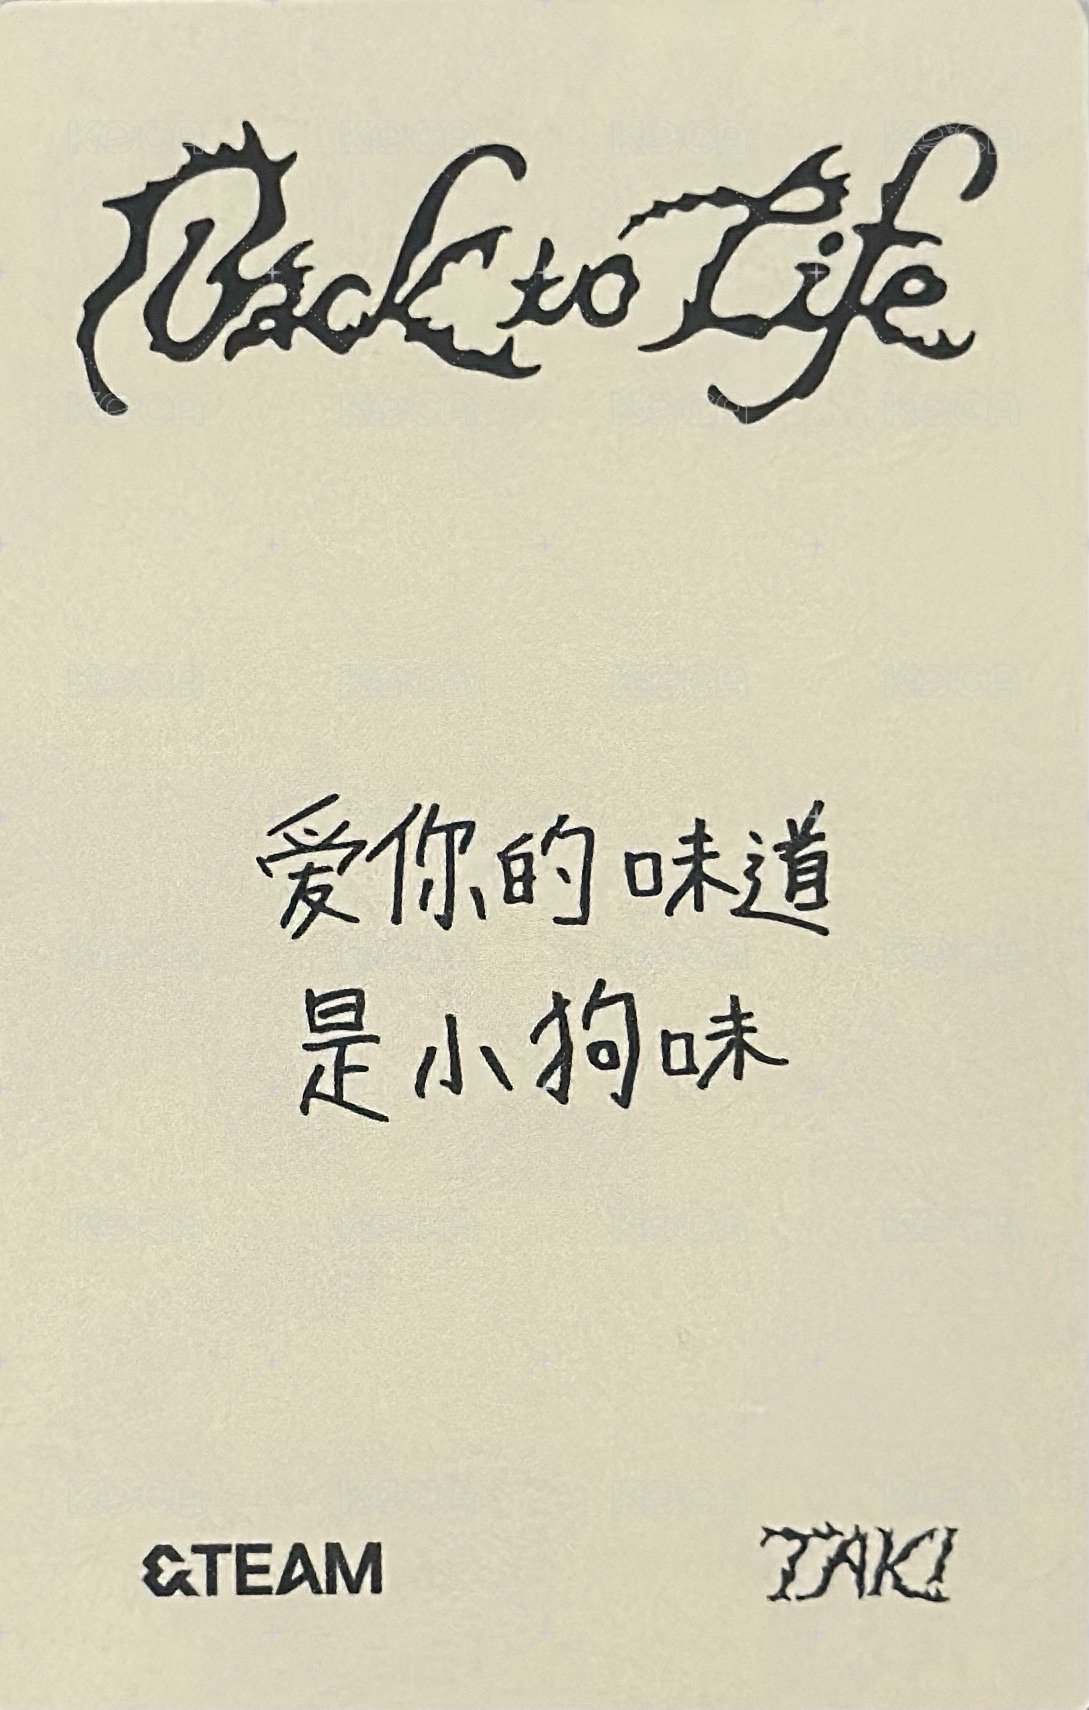 Back to Life
爱你的味道
是小狗味
&TEAM
TAKI